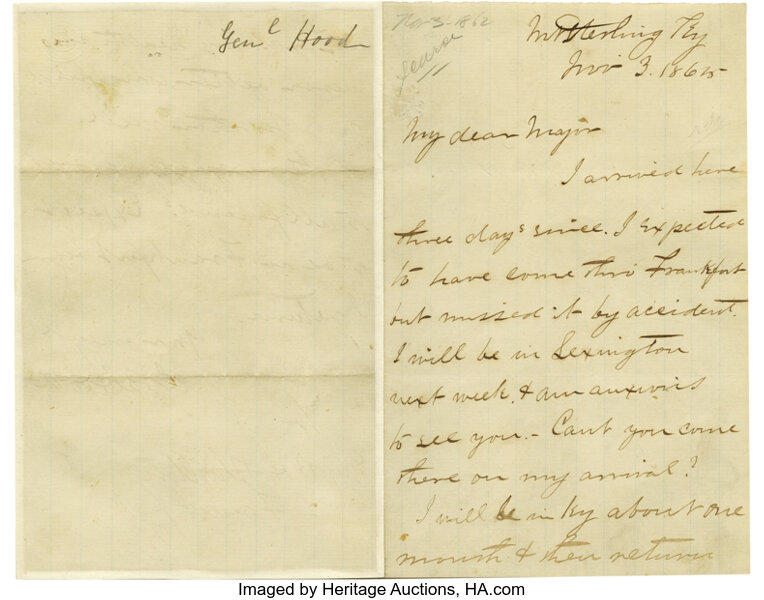 Genl Hood
Nov 3. 1862
Mt Sterling Ky
Nov 3. 1865
My dear Major
I arrived here
three days since. I expected
to have come thro Frankfort
but missed it by accident.
I will be in Lexington
next week, & am anxious
to see you. - Cant you come
there on my arrival?
I will be in Ky about one
month & then return
Imaged by Heritage Auctions, HA.com